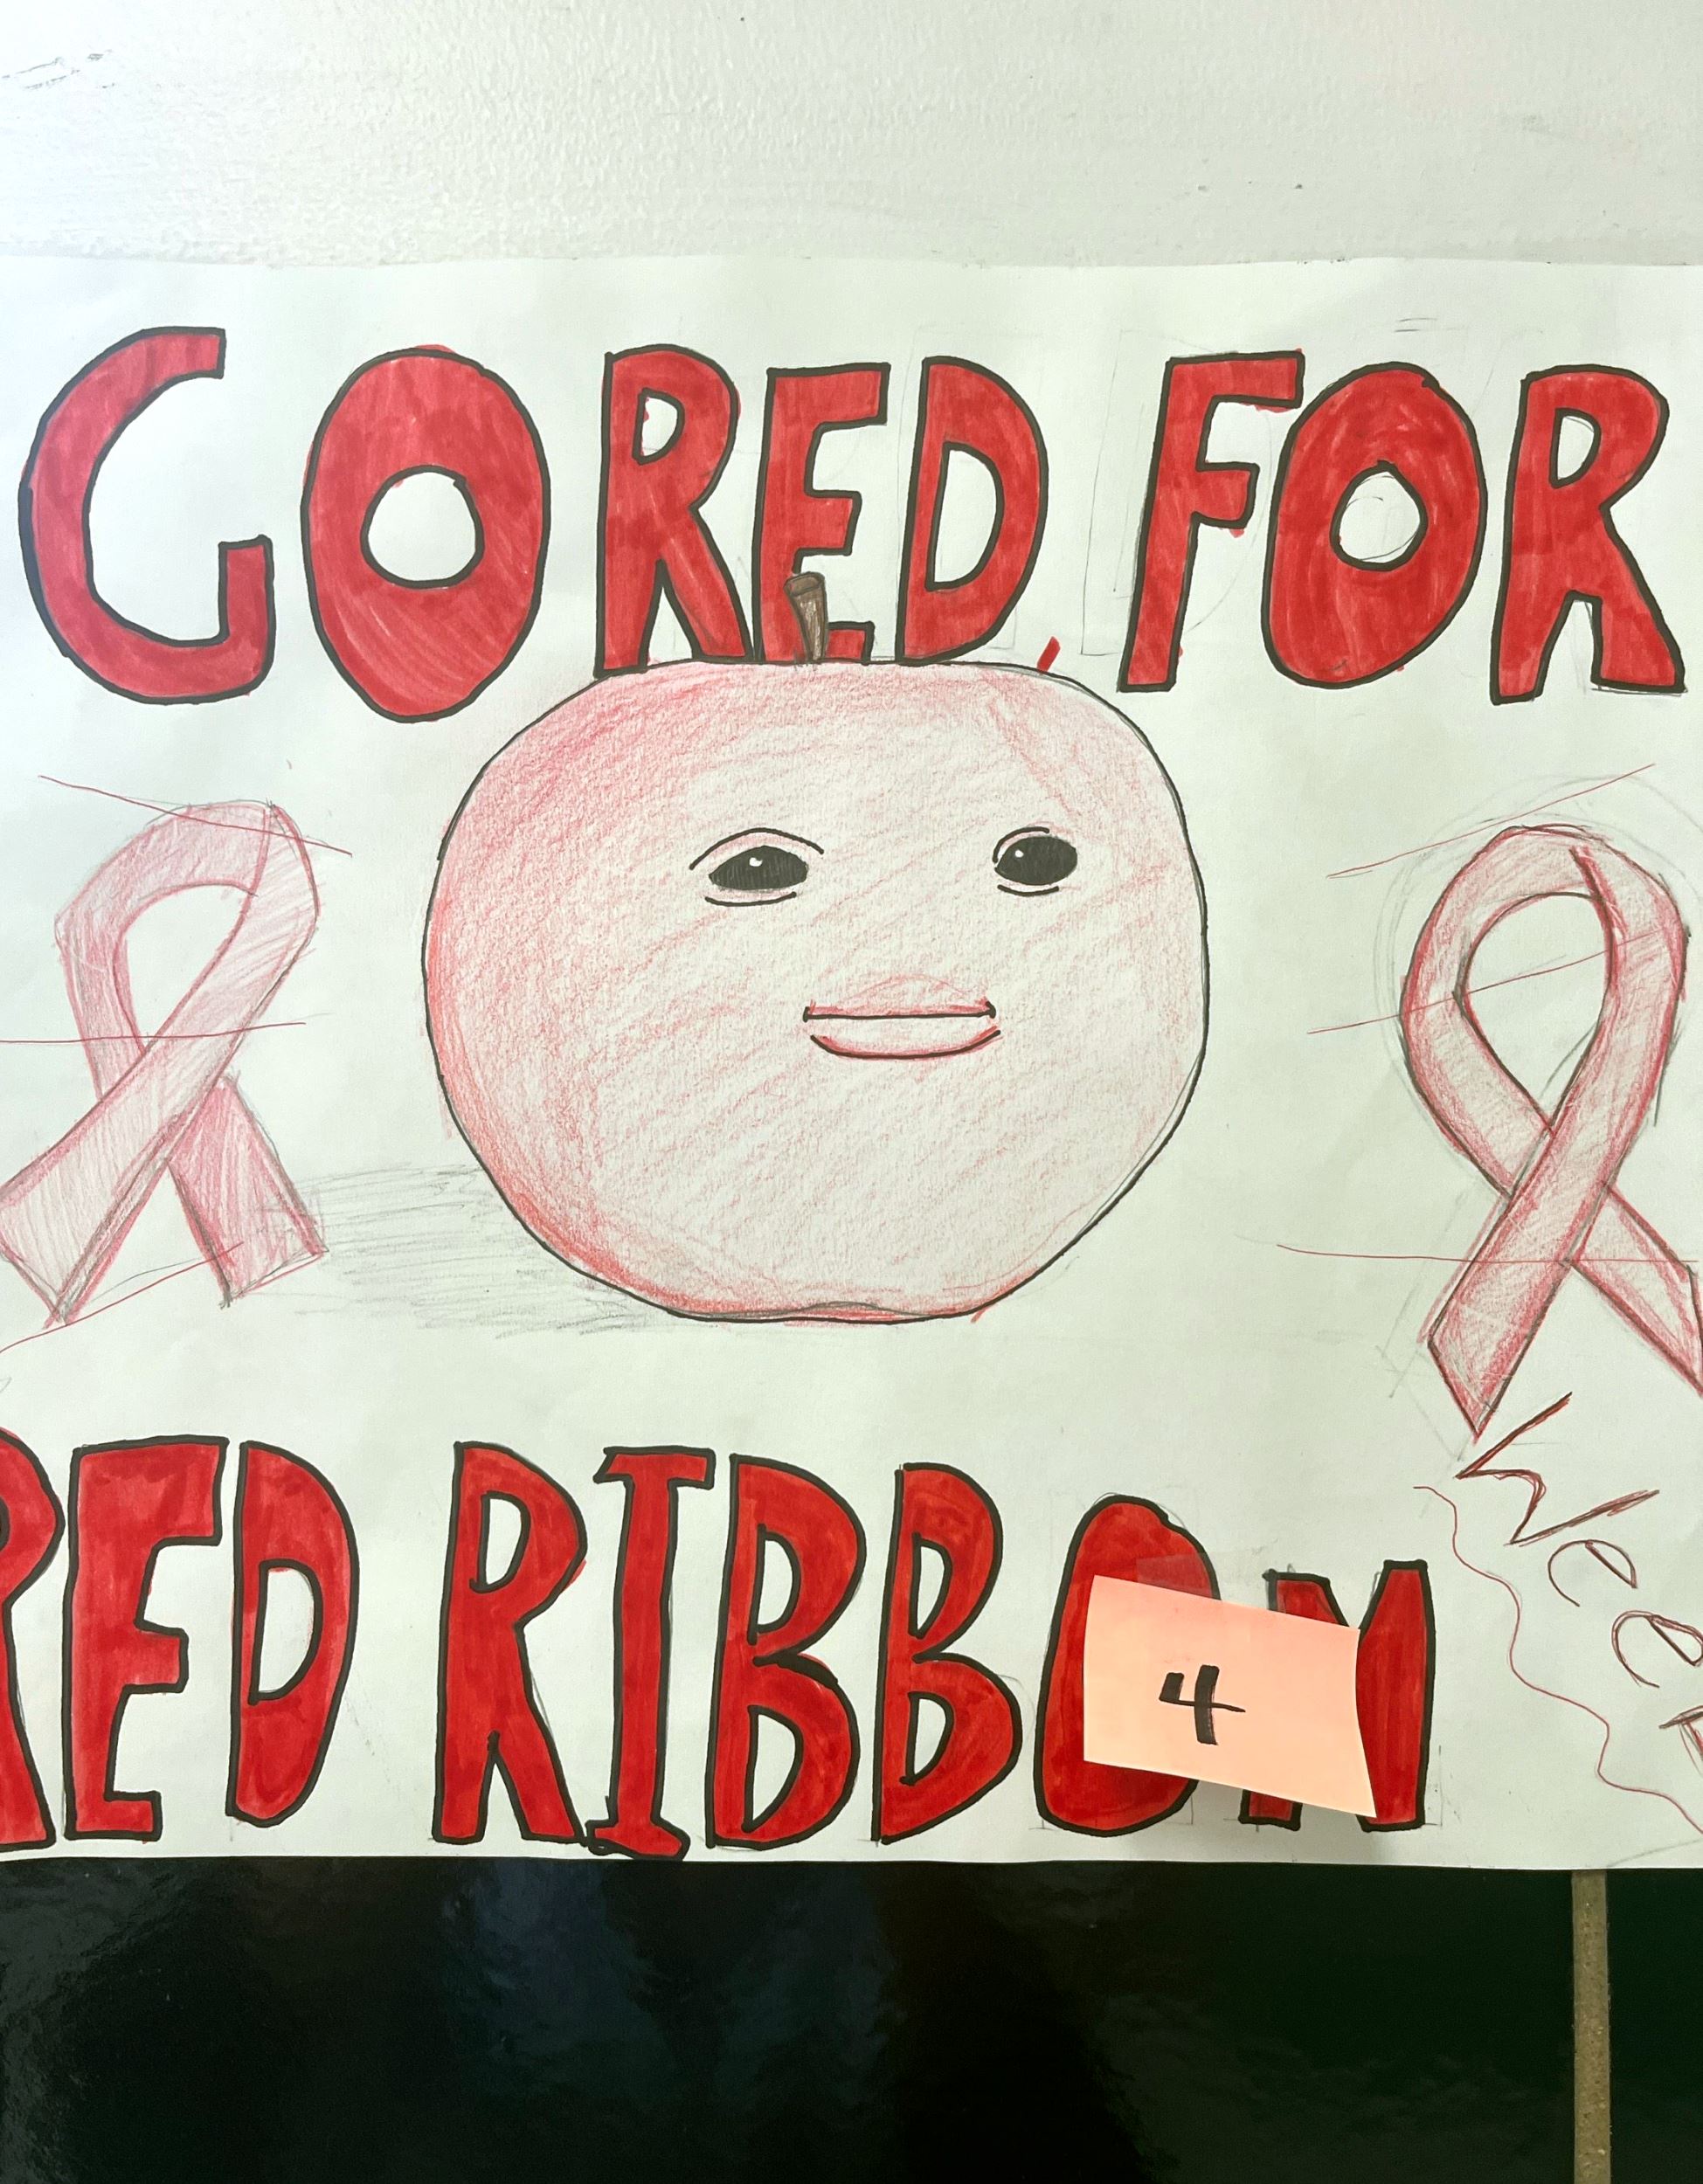 GO RED FOR
RED RIBBON
Week
4